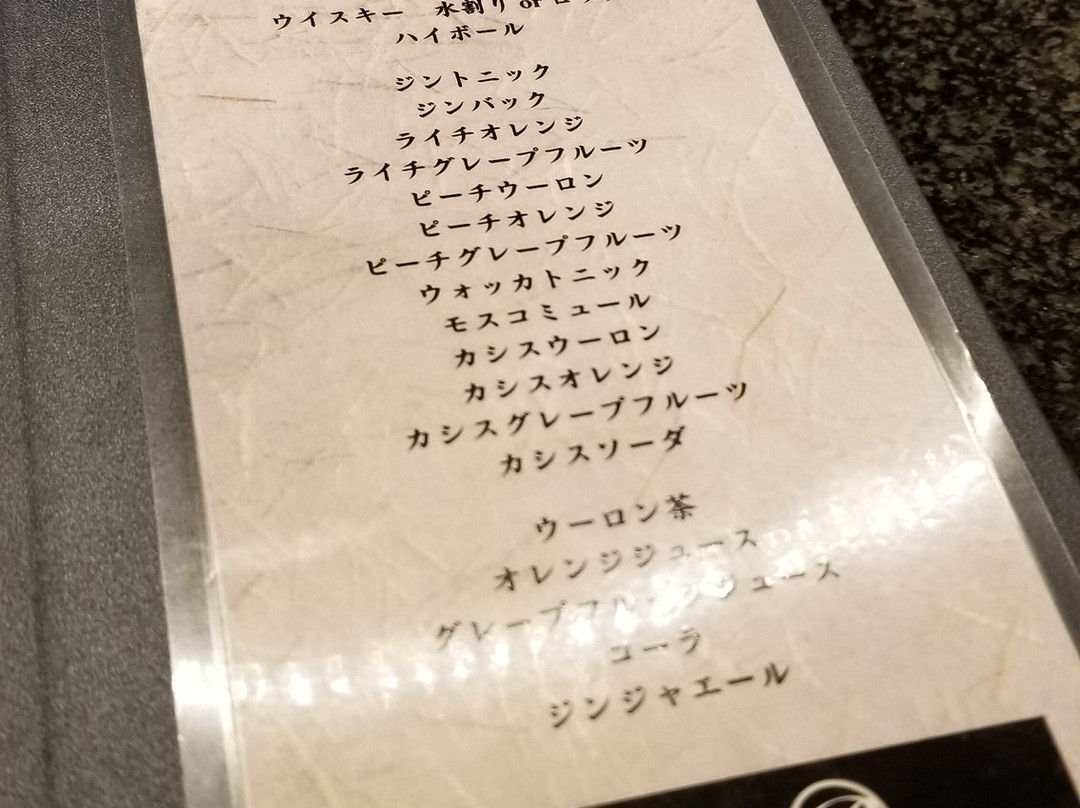 ウイスキー 水割り or ロック
ハイボール
ジントニック
ジンバック
ライチオレンジ
ライチグレープフルーツ
ピーチウーロン
ピーチオレンジ
ピーチグレープフルーツ
ウォッカトニック
モスコミュール
カシスウーロン
カシスオレンジ
カシスグレープフルーツ
カシスソーダ
ウーロン茶
オレンジジュース
グレープフルーツジュース
コーラ
ジンジャエール